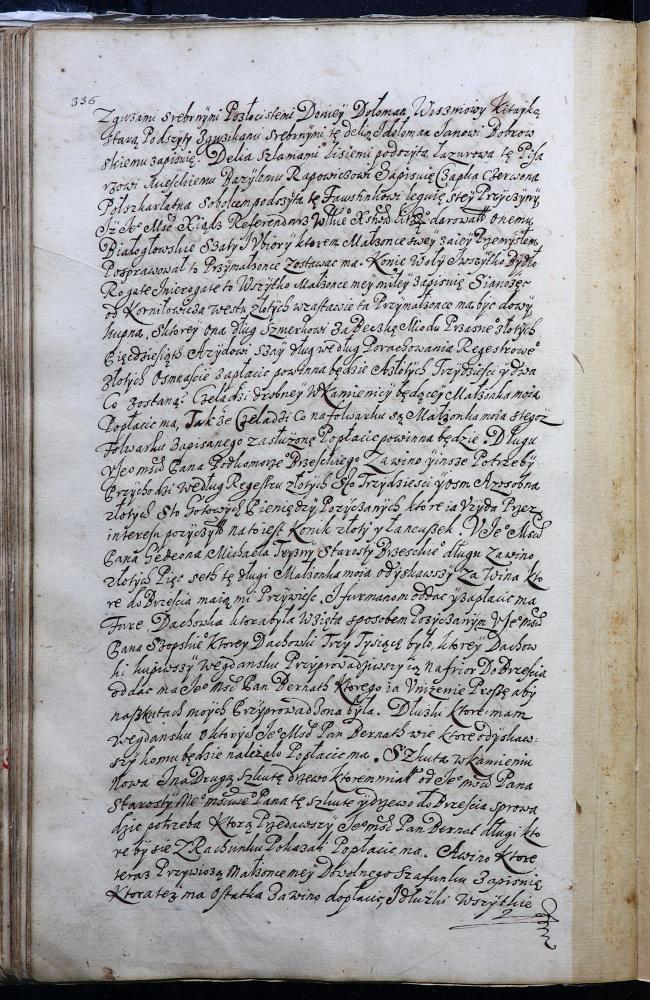 336
Zguzami srebrnymi Pozłocistemi Doniey Dołoman Wiszniowy Kitayką
starą Podszyty Zguzikami srebrnymi tę delią Idołoman Janowi Piotrow
skiemu zapisuię. Delia szlamami lisiemi podszyta lazurowa tę Pisa
rzowi Mieyskiemu Bazylemu Rapowiczowi Zapisuię Czapka czerwona
Połszkarłatna Sobolcem podszyta tę leguię stey Przyczyny
Iż Je° Mść Xiądz Referendarz W darował onemu
Białogłowskie Szaty Ubiory ktorem Małżonce swey zaiey Przemysłem
Posprawował to Przymałżonce zostawać ma. Konie Woły Iwszytko Bydło
Rogate Inierogate to Wszytko Małżonce mey miłey Zapisuię Sianożęć
od Korniłowicza westu złotych wzastawie ta Przymałżonce ma być dowy
kupna, Sktorey ona dług Szmerkowi Za Beczkę Miodu Przasne° złotych
Pięćdziesiąth Azydowi dług według Porachowania Regestrowe°
złotych Osmnaście Zapłacić powinna będzie Azłotych Trzydzieści ydwa
Co zostaną Czeladzi drobney WKamienicy będącey Małżonka moia
Popłacić ma, Tak że Czeladzi Co nafolwarku są Małżonka moia stegoż
Folwarku Zapisanego zasłużone Popłacić powinna będzie. Długu
UJe° mści Pana Podkomorze° Brzeskiego Za wino yinsze Potrzeby
Przychodzi według Regestru złotych Sto Trzydzieści yosm Aosobna
złotych Sto Gotowych Pieniędzy Pożyczanych, ktore ia Przez
interesu pożyczył nato iest Konik złoty y Łancuszek. U Je° Mści
Pana Gedeona Michała Tryzny Starosty Brzeskie° długu Zawino
złotych Pięć seth tę długi Małżonka moia odyskawszy Za Wina kto
re do Brześcia maią mi Przywieść, Ifurmanom oddać yzapłacić ma
Dachowka ktorabyła Wzięta sposobem Pożyczanym UJe° mści
Pana Ktorey Dachowki Trzy Tysiące było, ktorey Dachow
ki kupiwszy Wegdansku Przyprowadziwszy ią Do Brześcia
oddać ma Je° Mść Pan Bernath Ktorego ia Uniżenie Proszę aby
naszkutach moych Przyprowadzona była. Dłużki ktore mam
Wegdansku Oktorych Je° Mść Pan Bernath wie ktore odyskaw:
szy komu będzie należało Popłacić ma. Szkuta wkamieniu
Nowa Ina Drugą Szkutę drzewo ktorem miał od Je° mści Pana
Starosty Me° mściwe° Pana tę Szkutę ydrzewo do Brześcia sprowa
dzić potrzeba Ktorą Przedawszy Je° mść Pan Bernat długi kto
re by się Z Rachunku Pokazali Popłacić ma. Awino Ktore
teraz Przywiozą Małżonce mey Dowolnego Szafunku Zapisuię
Ktora też ma Ostatka Zawino dopłacić, Idłużki Wszytkie